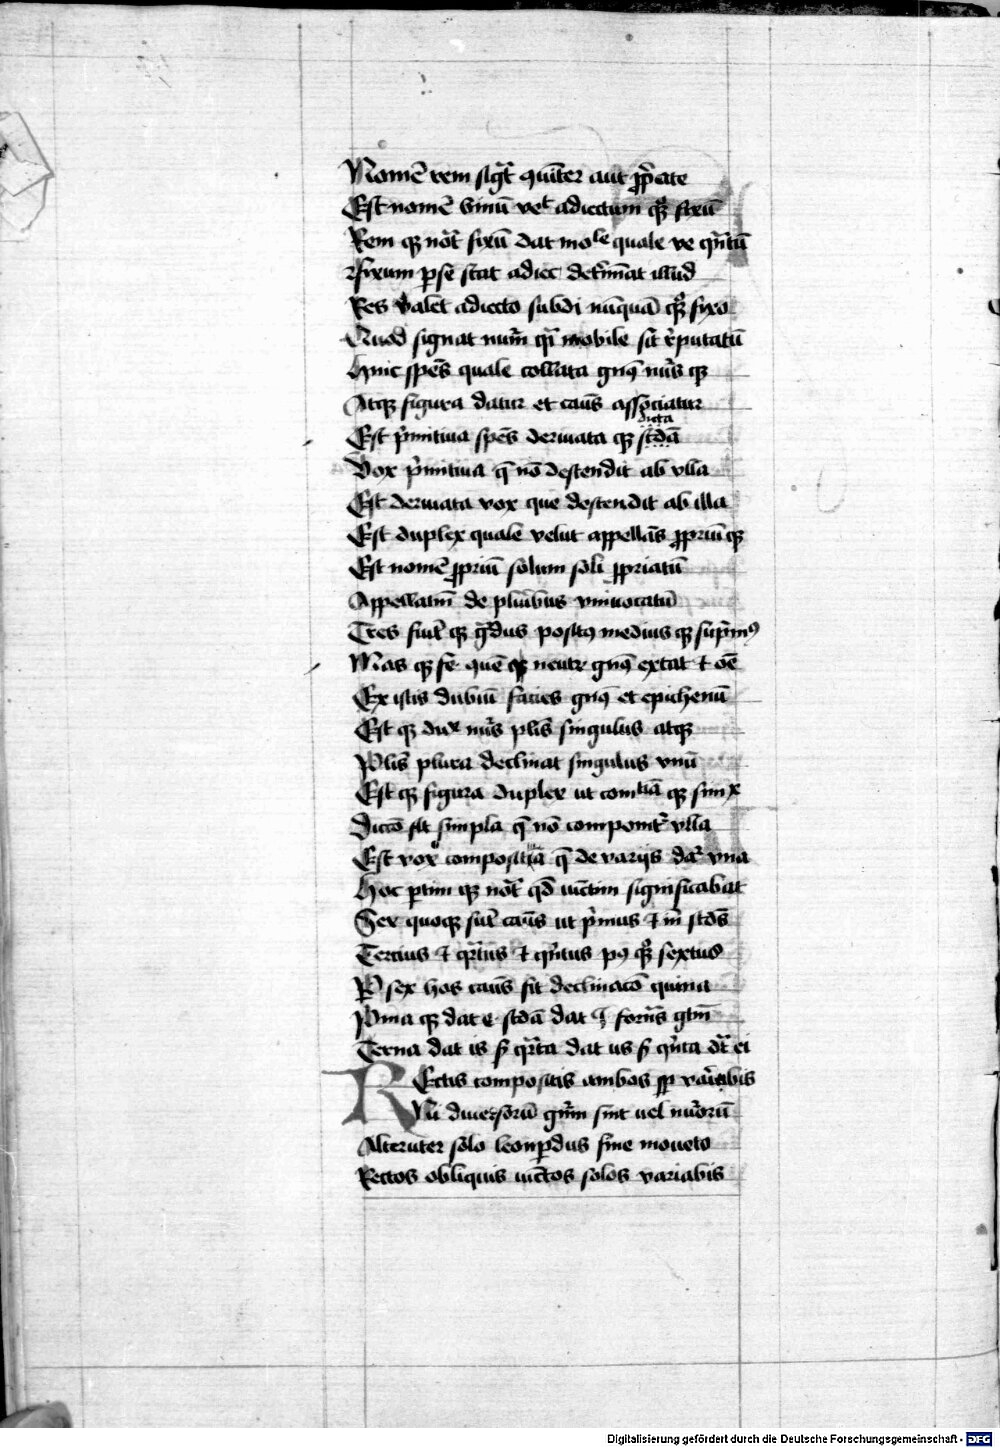 Nomē rem sigt̄ quīter aut ꝓp̄ate
Est nomē binū vel adiectum qꝫ fixū
Rem qꝫ not̄ fixū dat mole quale ve qn̄tū
fixum per se stat adiec det̄minat illud
Res valet adiecto subdi nūquā qꝫ fixo
Quod signat num̄ qi mobile sit reputatū
Huic spēs quale collata gnꝯ nūs qꝫ
Atqꝫ figura datur et caūs associatur
dicta
Est p̄mitiua spēs deriuata qꝫ scdā
Vox p̄mitiua q̄ nō descendit ab vlla
Est deriuata vox que descendit ab illa
Est duplex quale velut appellās ꝓpriū qꝫ
Est nomē ꝓpriū solum soli ꝓpriatū
Appellatiū de pluribus vniuocatū
Tres siūt qꝫ g̃dus positꝯ medius qꝫ sup̄mꝯ
Mas qꝫ fe quē qꝫ neutr gnꝯ extat ⁊ oē
Ex istis dubiū facies gnꝯ et epichenū
Est qꝫ dux nūs plīs singulus atqꝫ
Plīs plura declinat singulus vnū
Est qꝫ figura duplex ut comtiā qꝫ simx
Dictō sit simpla q̄ nō componit̄ vlla
Est vox composita q̄ de varijs dat̄ vna
Hoc ptim qꝫ not̄ qd̄ iūctim significabat
Sex quoqꝫ sūt caūs ut p̄mus ⁊ in scdūs
Tercius ⁊ qr̄tus ⁊ qn̄tus pꝯ qꝫ sextus
Per sex hos caūs fit declinacō quina
Pma qꝫ dat e scdā dat i formās gtm̄
Terna dat is sꝫ qr̄ta dat us sꝫ qn̄ta dt̄ ei
Rectis compositis ambos ꝓp variabis
Ni diuersorū gn̄m sint uel nūorū
Alteruter solo leopardus fine moueto
Rectos obliquis iūctos solos variabis
Digitalisierung gefördert durch die Deutsche Forschungsgemeinschaft - DFG